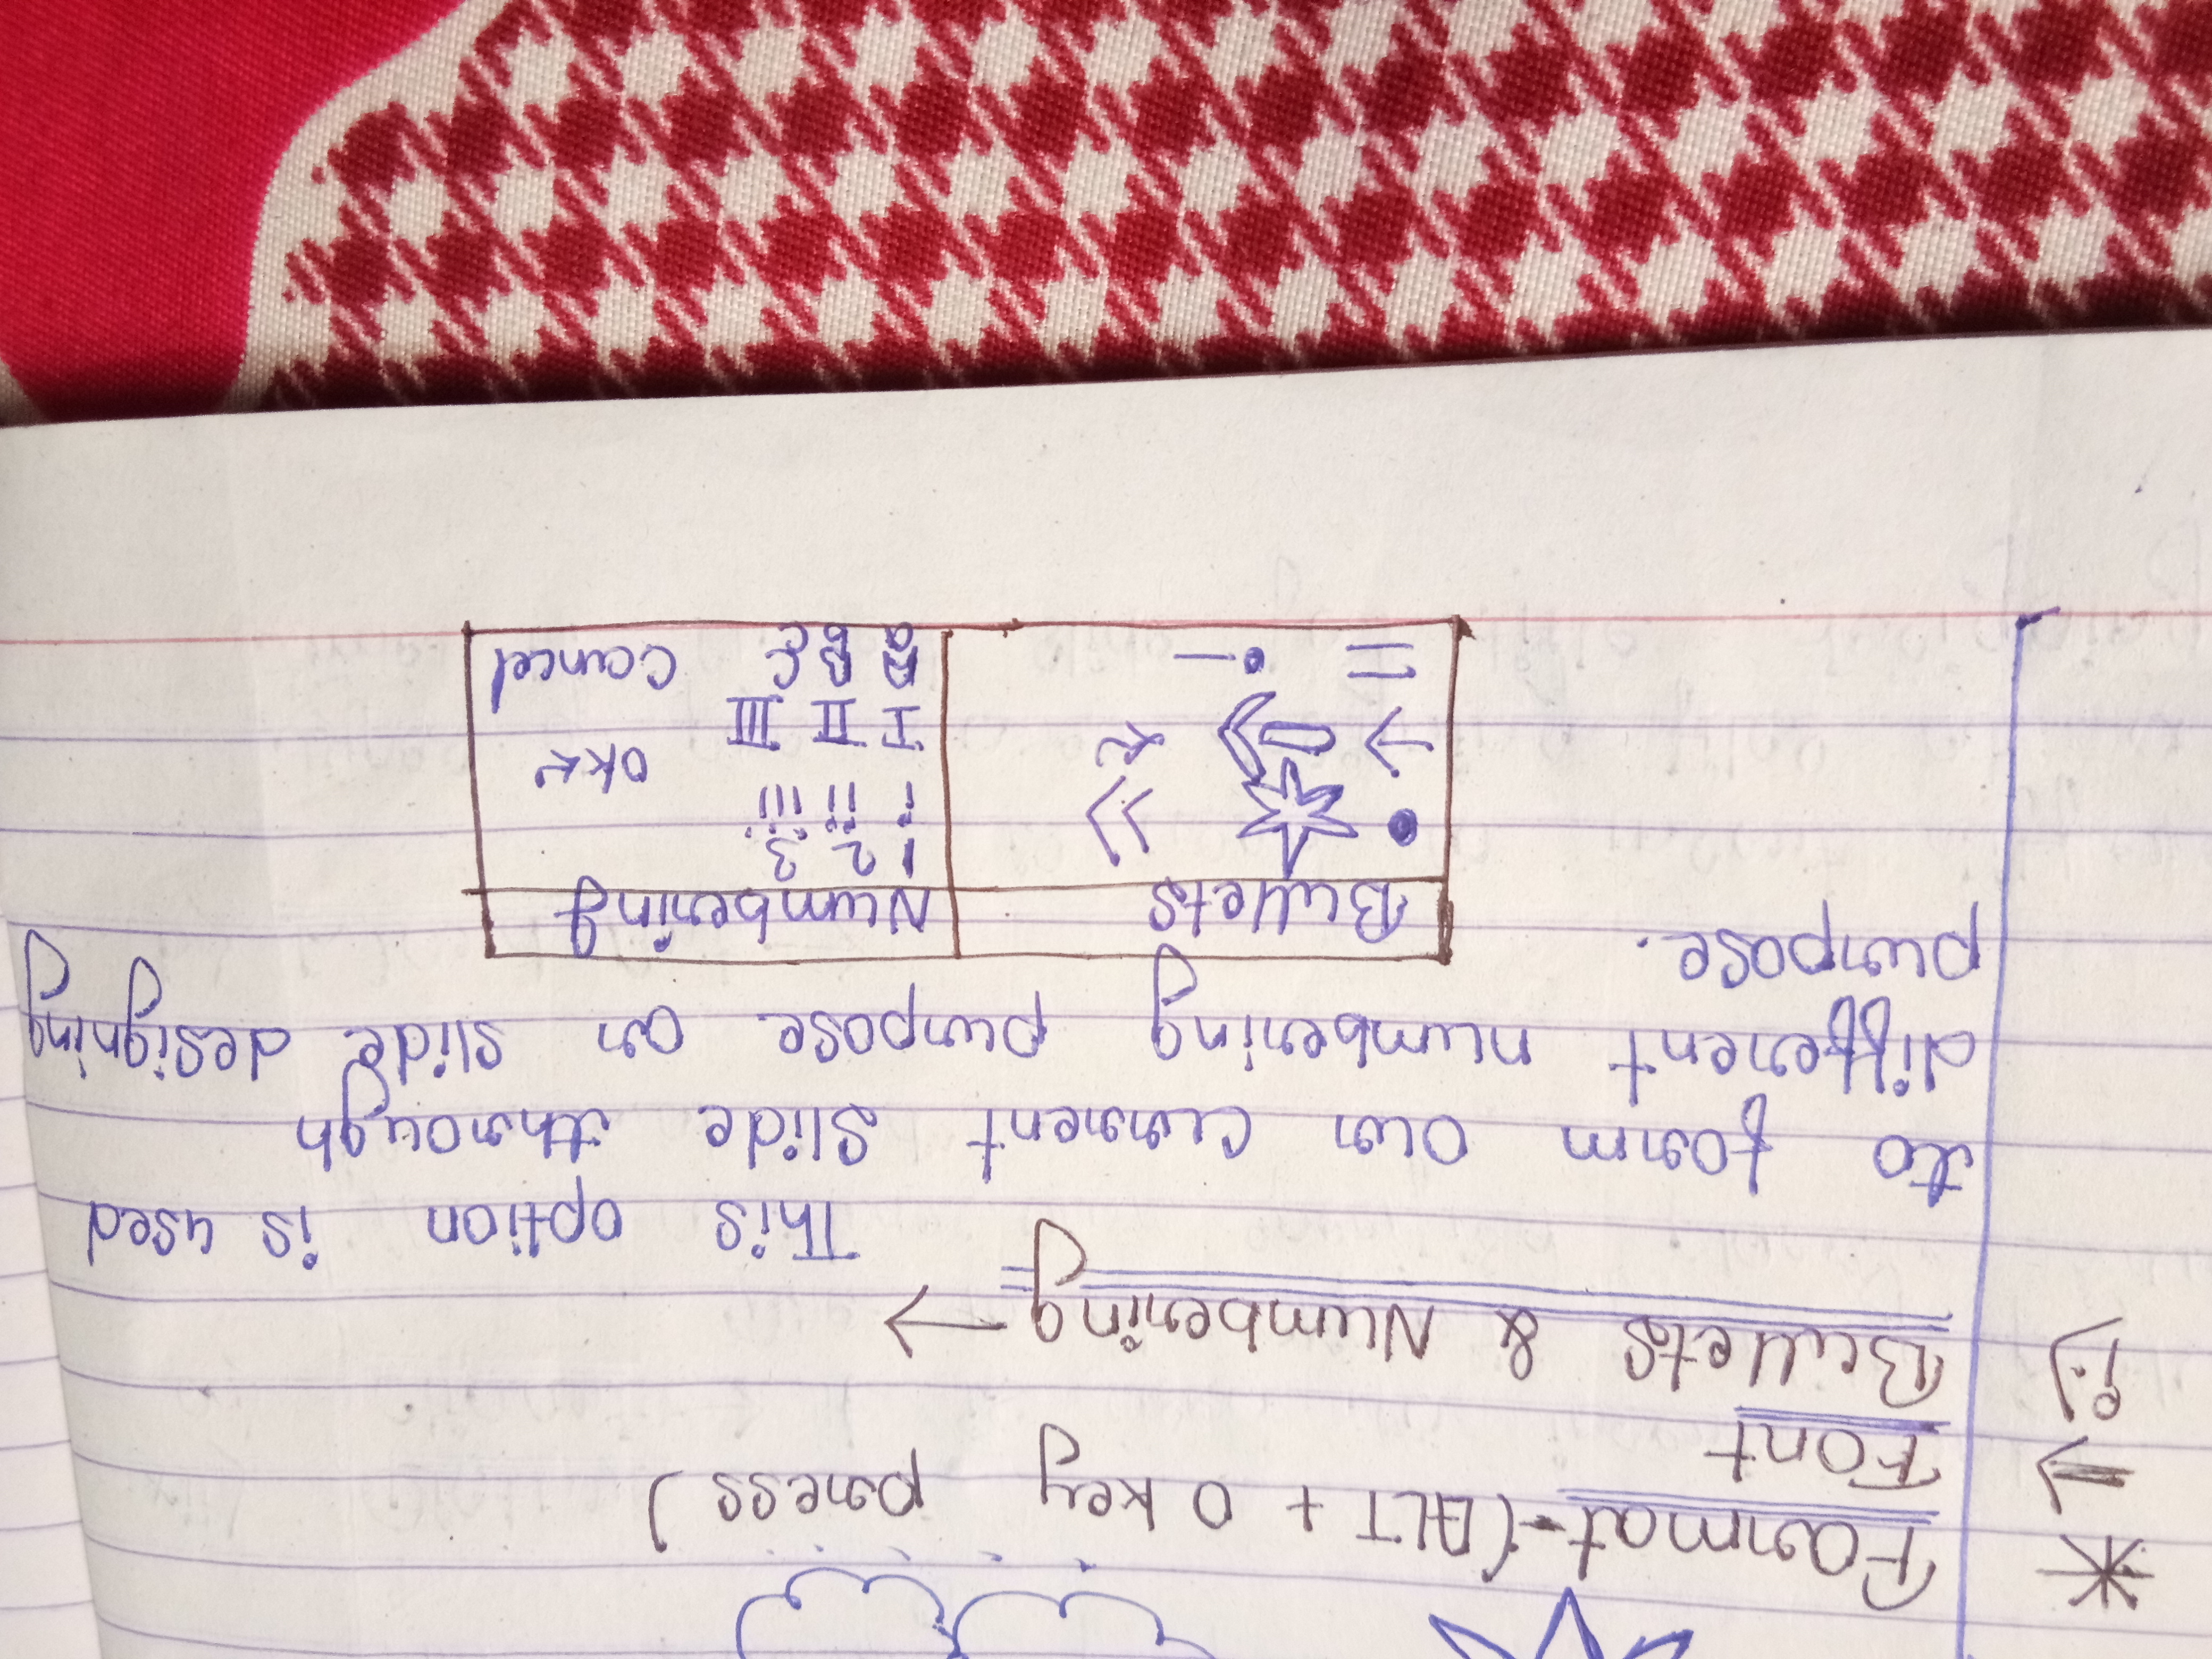 * Format-(ALT + O key press)
→ Font
i) Bullets & Numbering →
This option is used
to form our current slide through
different numbering purpose on slide designing
purpose.
Bullets Numbering
1 2 3
i ii iii
OK
→ I II III
= A B C Cancel
a B C